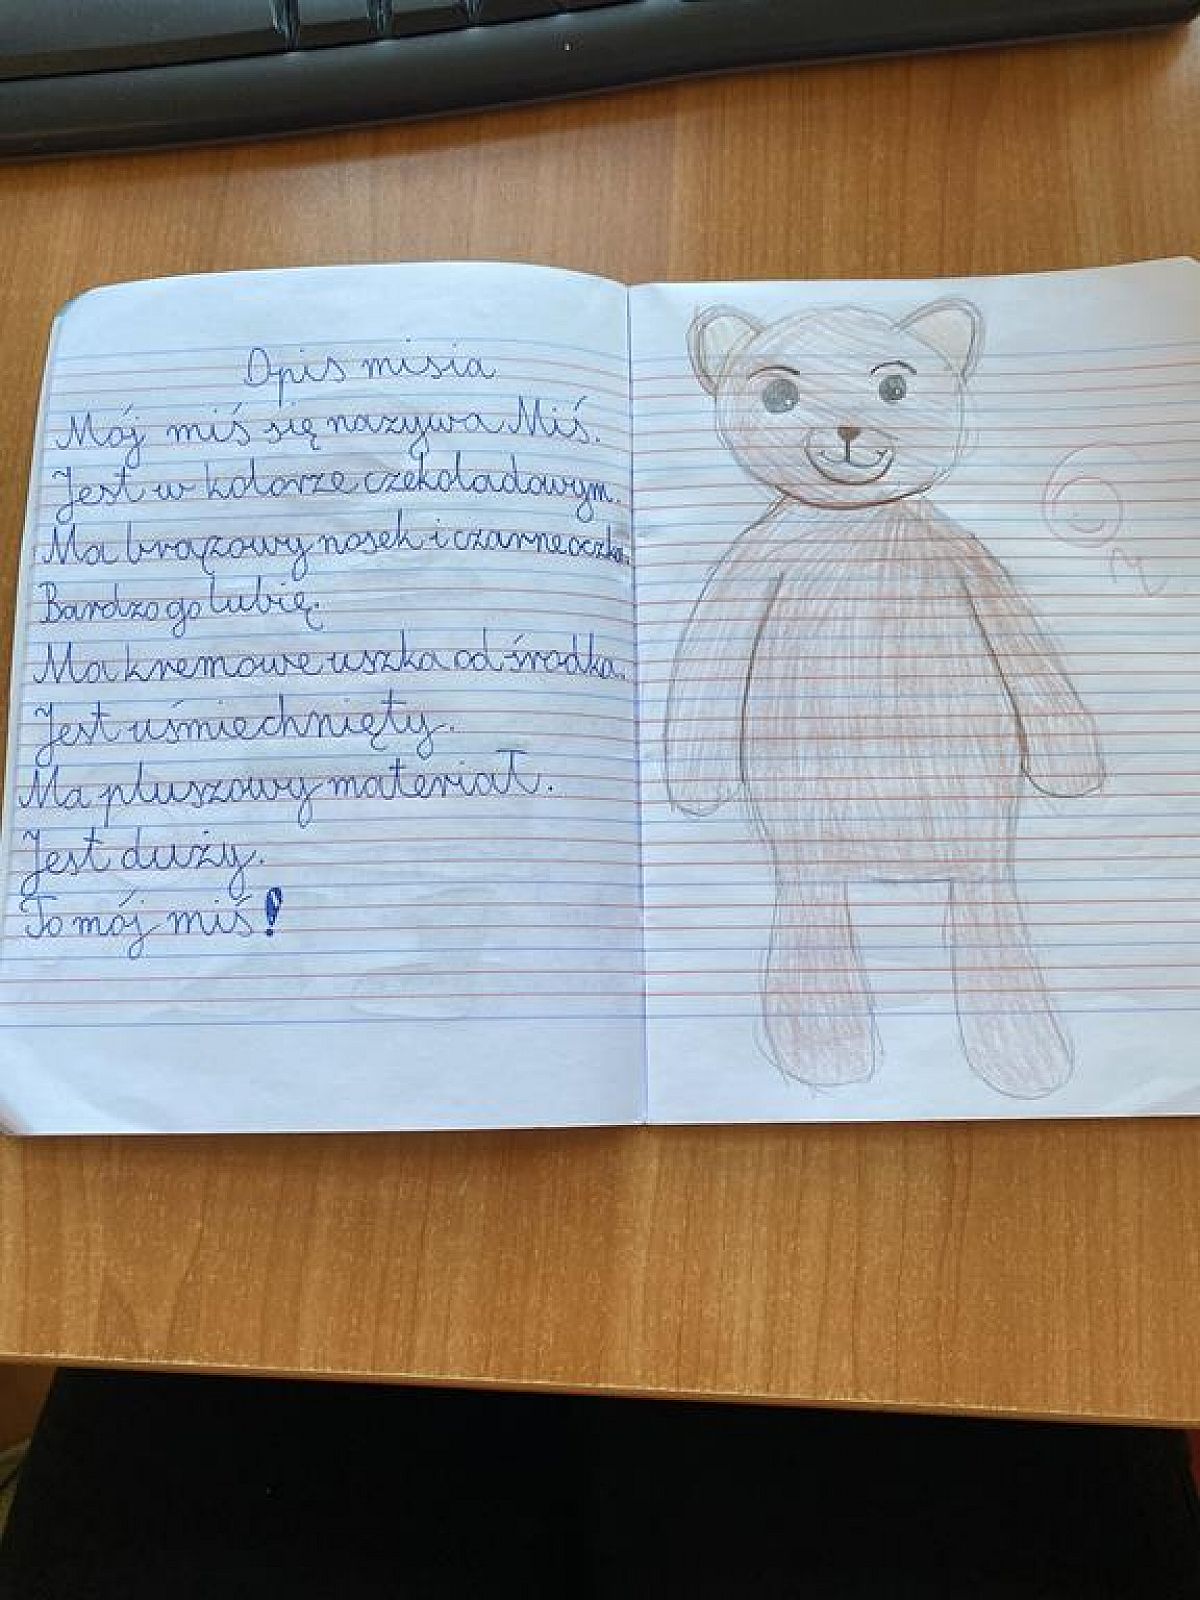 Opis misia
Mój miś się nazywa Miś.
Jest w kolorze czekoladowym.
Ma brązowy nosek i czarne oczka.
Bardzo go lubię.
Ma kremowe uszka od środka.
Jest uśmiechnięty.
Ma pluszowy materiał.
Jest duży.
To mój miś!